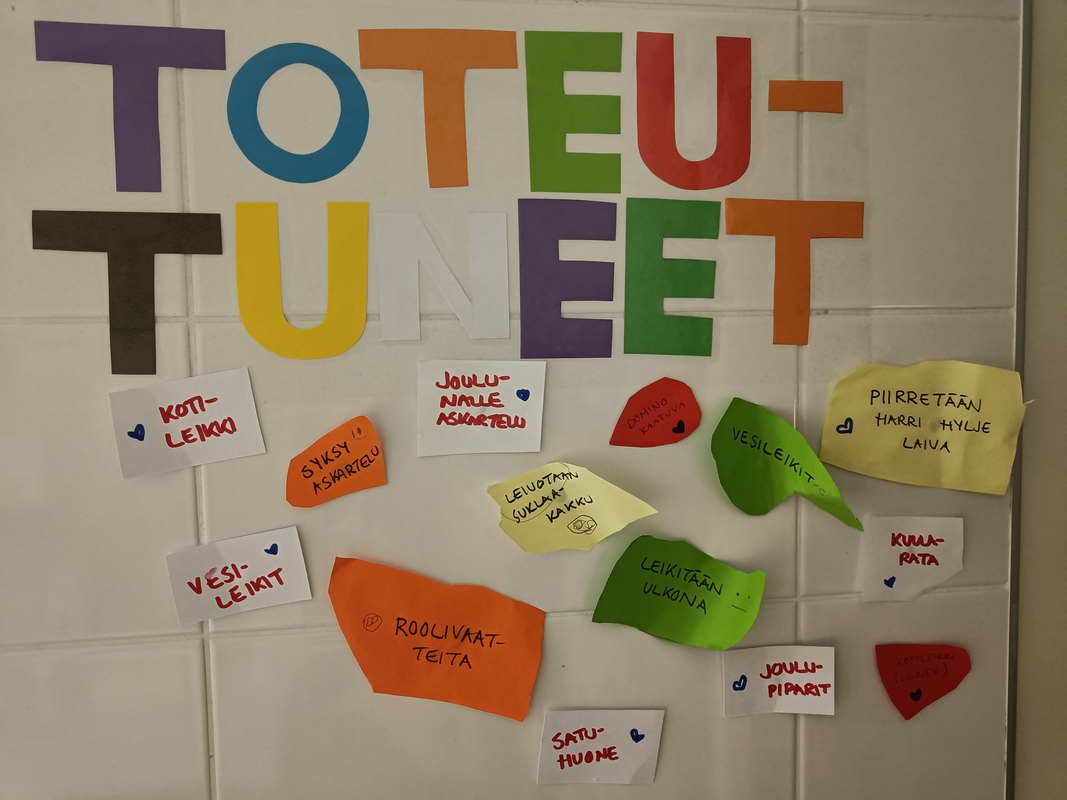 TOTEU-
TUNEET
KOTI-
LEIKKI
SYKSY
ASKARTELU
JOULU-
NALLE
ASKARTELU
DOMINO
KAATUVA
VESILEIKIT
PIIRRETÄÄN
HARRI HYLJE
LAIVA
LEIVOTAAN
SUKLAA-
KAKKU
VESI-
LEIKIT
ROOLIVAAT-
TEITA
LEIKITÄÄN
ULKONA
KUULA-
RATA
JOULU-
PIPARIT
KOTILEIKKI
SATU-
HUONE